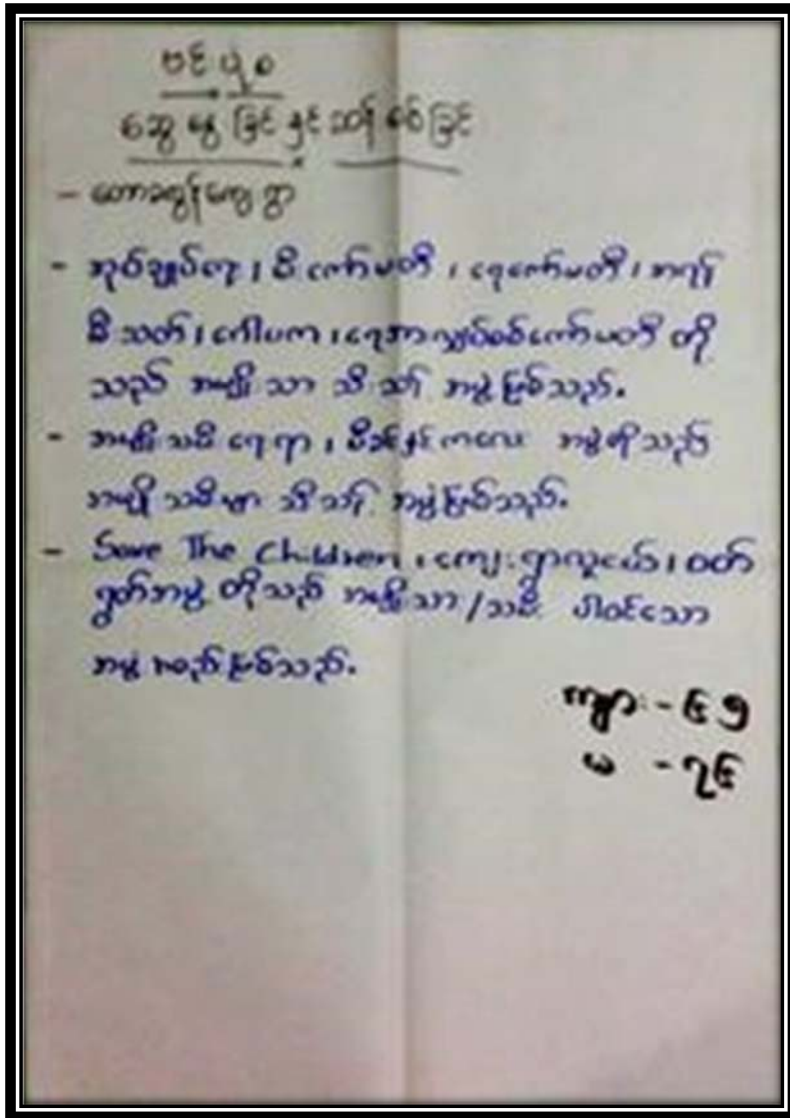 ဗင်ပုံစ
ဆွေးနွေးခြင်းနှင့် ဆန်းစစ်ခြင်း
- တောခွန်ကျေးရွာ
- အုပ်ချုပ်ရေး၊ မီးကော်မတီ၊ ရေကော်မတီ၊ အရန်
မီးသတ်၊ ဂေါပက၊ ကော်မတီ တို့
သည် အမျိုးသား သီးသန့် အဖွဲ့ဖြစ်သည်။
- အမျိုးသမီးရေးရာ၊ မိခင်နှင့်ကလေး အဖွဲ့တို့သည်
အမျိုးသမီးများ သီးသန့် အဖွဲ့ဖြစ်သည်။
- Save The Children၊ ကျေးရွာလူငယ်၊ ဝတ်
ရွတ်အဖွဲ့ တို့သည် အမျိုးသား/သမီး ပါဝင်သော
အဖွဲ့အစည်းဖြစ်သည်။
ကျား - ၆၅
မ - ၇၆